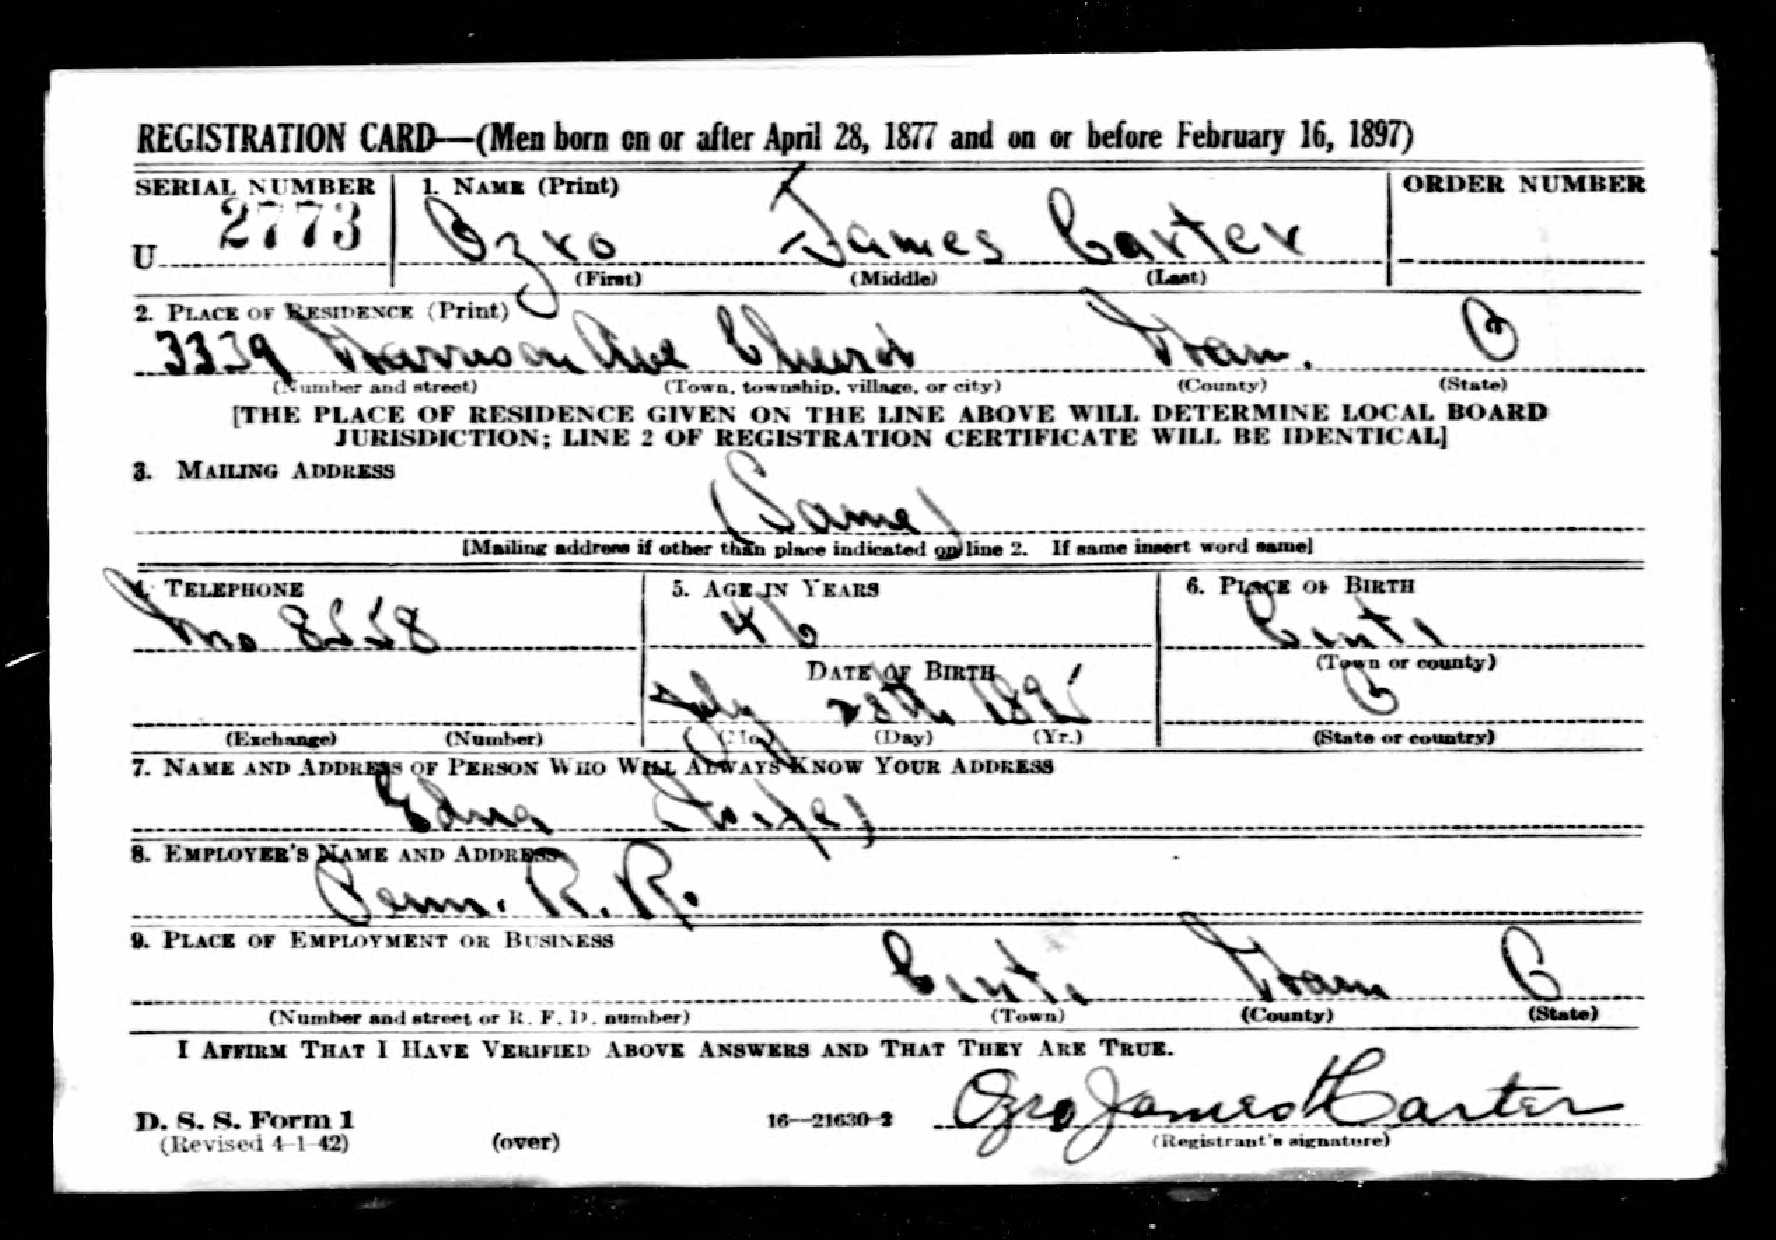 REGISTRATION CARD—(Men born on or after April 28, 1877 and on or before February 16, 1897)
SERIAL NUMBER 1. NAME (Print) ORDER NUMBER
U 2773 Ozro James Carter
(First) (Middle) (Last)
2. PLACE OF RESIDENCE (Print)
3339 Harrison Ave Ham. O
(Number and street) (Town, township, village, or city) (County) (State)
[THE PLACE OF RESIDENCE GIVEN ON THE LINE ABOVE WILL DETERMINE LOCAL BOARD
JURISDICTION; LINE 2 OF REGISTRATION CERTIFICATE WILL BE IDENTICAL]
3. MAILING ADDRESS
(Same)
[Mailing address if other than place indicated on line 2. If same insert word same]
4. TELEPHONE 5. AGE IN YEARS 6. PLACE OF BIRTH
8558 46 Cinti
DATE OF BIRTH (Town or county)
July 28th 1895 O
(Exchange) (Number) (Mo.) (Day) (Yr.) (State or country)
7. NAME AND ADDRESS OF PERSON WHO WILL ALWAYS KNOW YOUR ADDRESS
Edna (Wife)
8. EMPLOYER'S NAME AND ADDRESS
Penn. R. R.
9. PLACE OF EMPLOYMENT OR BUSINESS
Cinti Ham O
(Number and street or R. F. D. number) (Town) (County) (State)
I AFFIRM THAT I HAVE VERIFIED ABOVE ANSWERS AND THAT THEY ARE TRUE.
D. S. S. Form 1 16—21630-2 Ozro James Carter
(Revised 4-1-42) (over) (Registrant's signature)